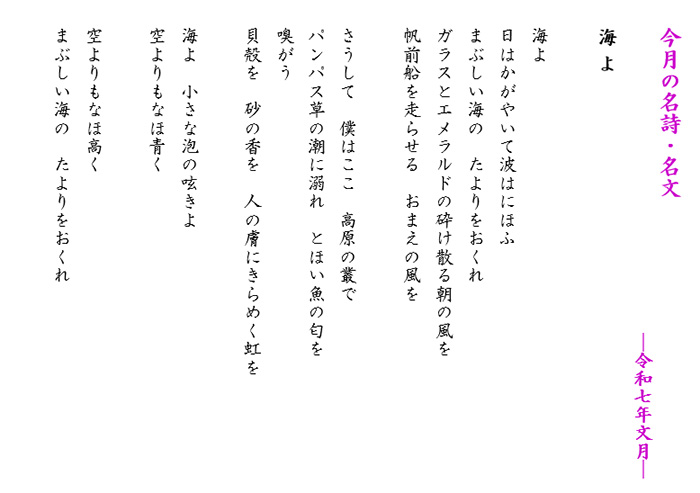 今月の名詩・名文
―令和七年文月―
海よ
海よ
日はかがやいて波はにほふ
まぶしい海の　たよりをおくれ
ガラスとエメラルドの砕け散る朝の風を
帆前船を走らせる　おまえの風を
さうして　僕はここ　高原の叢で
パンパス草の潮に溺れ　とほい魚の匂を
嗅がう
貝殻を　砂の香を　人の膚にきらめく虹を
海よ　小さな泡の呟きよ
空よりもなほ青く
空よりもなほ高く
まぶしい海の　たよりをおくれ